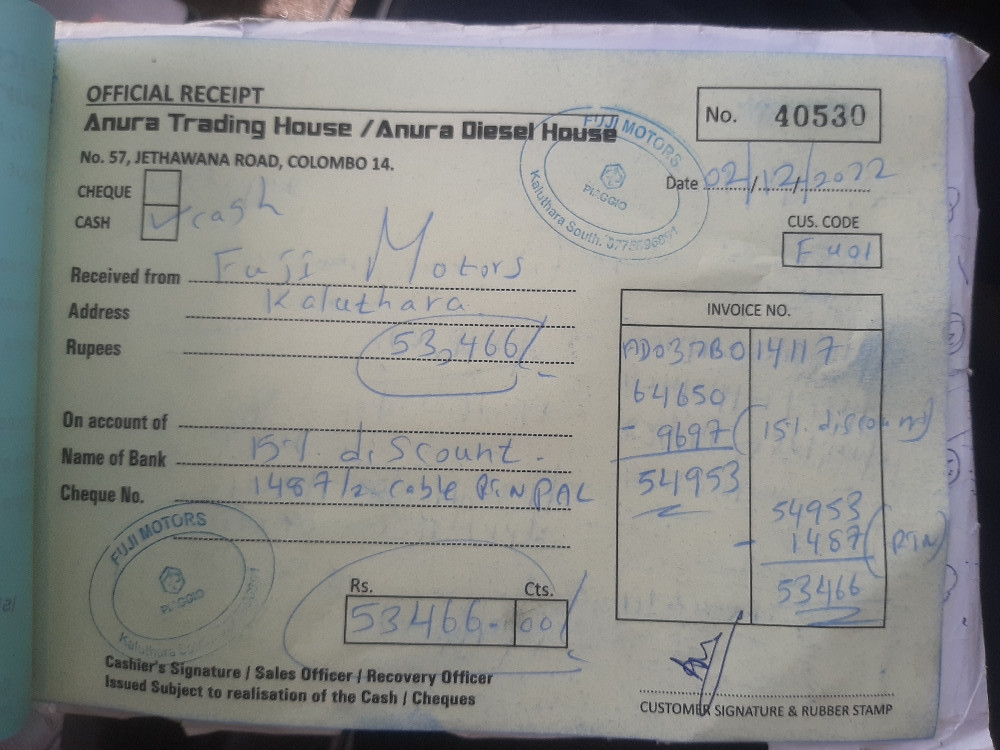 OFFICIAL RECEIPT
Anura Trading House /Anura Diesel House
No. 57, JETHAWANA ROAD, COLOMBO 14.
No. 40530
Date 02/12/2022
CHEQUE
CASH ✓ cash
CUS. CODE
FU01
FUJI MOTORS
PIAGGIO
Kaluthara South.
Received from Fuji Motors
Address Kaluthara
Rupees 53,466/-
On account of
Name of Bank 15% discount.
Cheque No. 1487/2 cable RTN
INVOICE NO.
14117
64650
- 9697 (15% discount)
54953
54953
- 1487 (RTN)
53466
FUJI MOTORS
PIAGGIO
Kaluthara
Rs. Cts.
53466.00/-
Cashier's Signature / Sales Officer / Recovery Officer
Issued Subject to realisation of the Cash / Cheques
CUSTOMER SIGNATURE & RUBBER STAMP